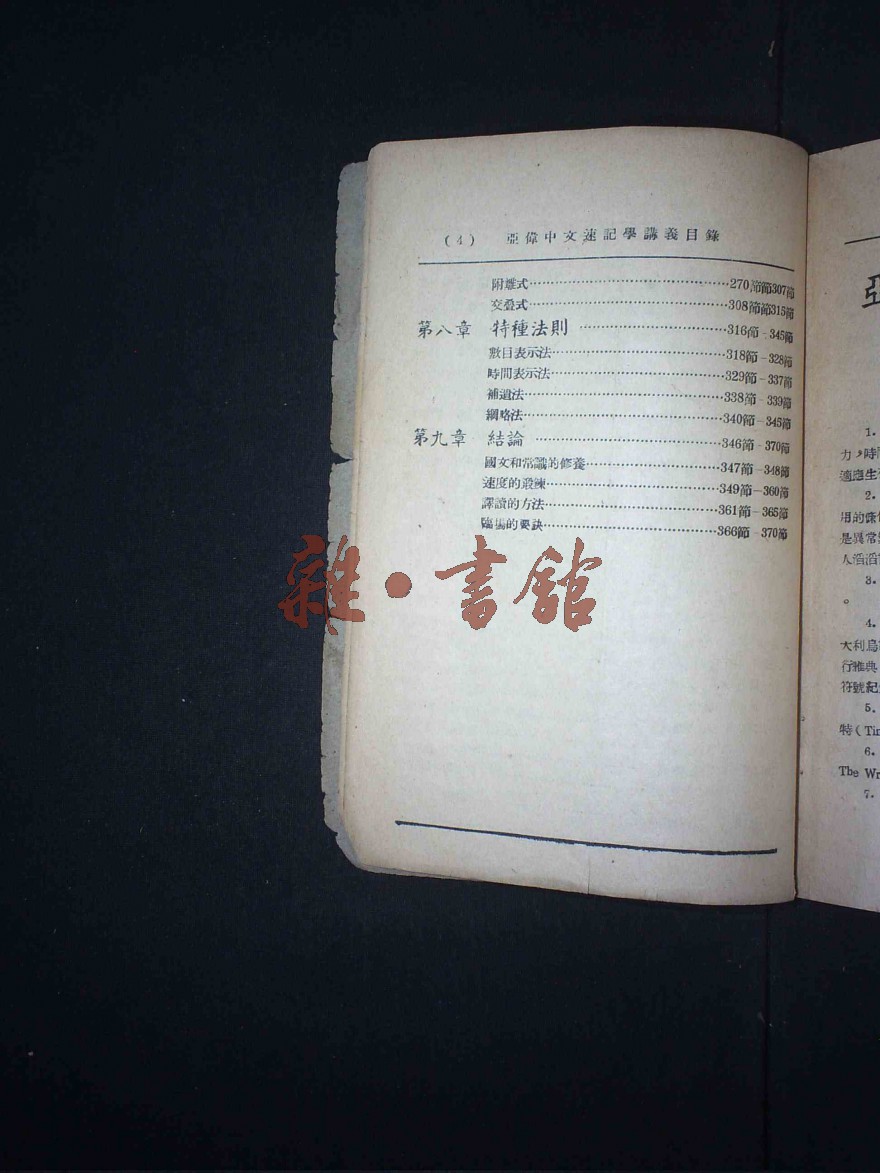 (4) 亞偉中文速記學講義目錄
附離式……270節節307節
交叠式……308節節315節
第八章 特種法則……316節–345節
數目表示法……318節–328節
時間表示法……329節–337節
補遺法……338節–339節
綱略法……340節–345節
第九章 結論……346節–370節
國文和常識的修養……347節–348節
速度的鍛練……349節–360節
譯讀的方法……361節–365節
臨場的要訣……366節–370節
雜·書館
亞
1.
力，時
適應生
2.
用的
是異常
人滔滔
3.
。
4.
大利
行雅典
符號紀
5.
特(Tir
6.
The Wr
7.